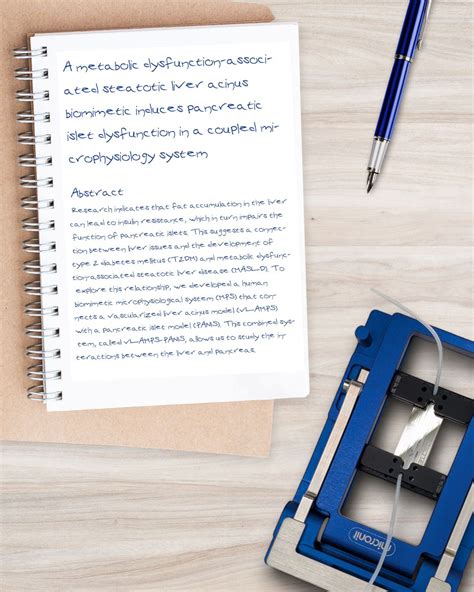 A metabolic dysfunction-associ-
ated steatotic liver acinus
biomimetic induces pancreatic
islet dysfunction in a coupled mi-
crophysiology system
Abstract
Research indicates that fat accumulation in the liver
can lead to insulin resistance, which in turn impairs the
function of pancreatic islets. This suggests a connec-
tion between liver issues and the development of
type 2 diabetes mellitus (T2DM) and metabolic dysfun-
ction-associated steatotic liver disease (MASLD). To
explore this relationship, we developed a human
biomimetic microphysiological system (MPS) that con-
nects a vascularized liver acinus model (vLAMPS)
with a pancreatic islet model (PANIS). This combined sys-
tem, called vLAMPS-PANIS, allows us to study the in-
teractions between the liver and pancreas.
micronit